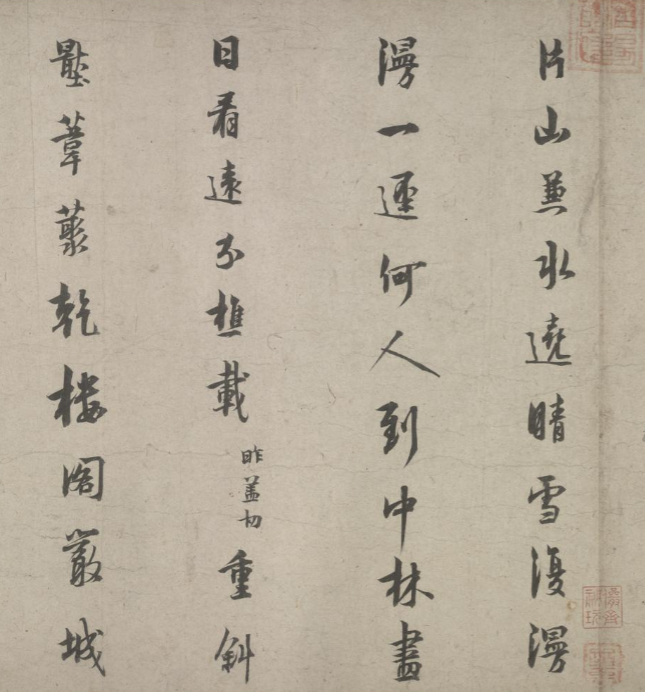 片山兼水遶晴雪復漫
漫一逕何人到中林盡
日看遠分樵載昨盖切重斜
壓葦藂乾樓閣嚴城